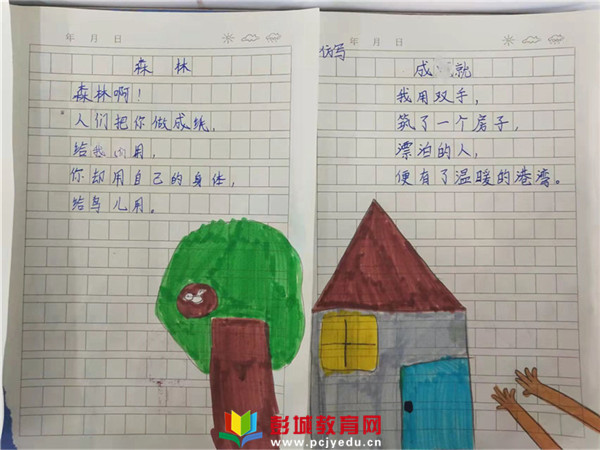 年 月 日
森 林
森林啊！
人们把你做成纸，
给我们用，
你却用自己的身体，
给鸟儿用。
年 月 日
仿写
成就
我用双手，
筑了一个房子，
漂泊的人，
便有了温暖的港湾。
彭城教育网
www.pcjyedu.cn